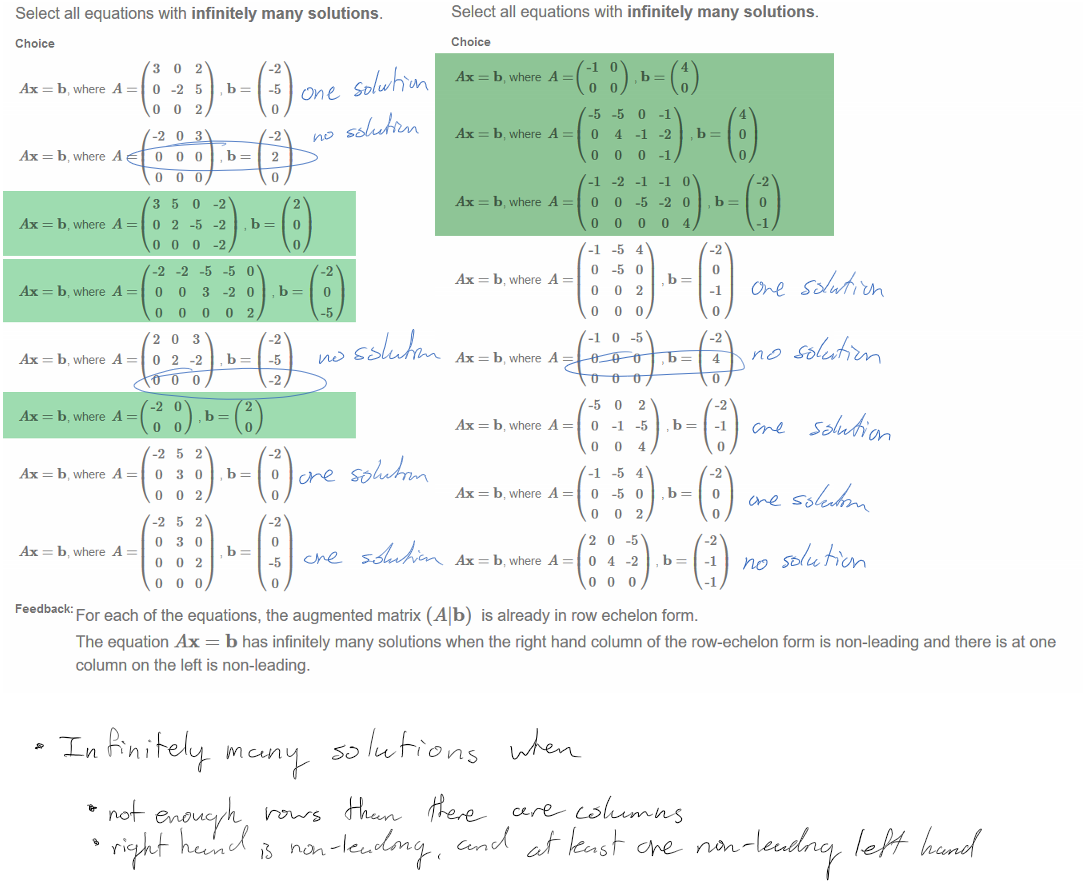 Select all equations with infinitely many solutions.
Choice
Ax = b, where A = (3 0 2; 0 -2 5; 0 0 2), b = (-2; -5; 0) one solution
Ax = b, where A = (-2 0 3; 0 0 0; 0 0 0), b = (-2; 2; 0) no solution
Ax = b, where A = (3 5 0 -2; 0 2 -5 -2; 0 0 0 -2), b = (2; 0; 0)
Ax = b, where A = (-2 -2 -5 -5 0; 0 0 3 -2 0; 0 0 0 0 2), b = (-2; 0; -5)
Ax = b, where A = (2 0 3; 0 2 -2; 0 0 0), b = (-2; -5; -2) no solution
Ax = b, where A = (-2 0; 0 0), b = (2; 0)
Ax = b, where A = (-2 5 2; 0 3 0; 0 0 2), b = (-2; 0; 0) one solution
Ax = b, where A = (-2 5 2; 0 3 0; 0 0 2; 0 0 0), b = (-2; 0; -5; 0) one solution
Select all equations with infinitely many solutions.
Choice
Ax = b, where A = (-1 0; 0 0), b = (4; 0)
Ax = b, where A = (-5 -5 0 -1; 0 4 -1 -2; 0 0 0 -1), b = (4; 0; 0)
Ax = b, where A = (-1 -2 -1 -1 0; 0 0 -5 -2 0; 0 0 0 0 4), b = (-2; 0; -1)
Ax = b, where A = (-1 -5 4; 0 -5 0; 0 0 2; 0 0 0), b = (-2; 0; -1; 0) one solution
Ax = b, where A = (-1 0 -5; 0 0 0; 0 0 0), b = (-2; 4; 0) no solution
Ax = b, where A = (-5 0 2; 0 -1 -5; 0 0 4), b = (-2; -1; 0) one solution
Ax = b, where A = (-1 -5 4; 0 -5 0; 0 0 2), b = (-2; 0; 0) one solution
Ax = b, where A = (2 0 -5; 0 4 -2; 0 0 0), b = (-2; -1; -1) no solution
Feedback: For each of the equations, the augmented matrix (A|b) is already in row echelon form.
The equation Ax = b has infinitely many solutions when the right hand column of the row-echelon form is non-leading and there is at one
column on the left is non-leading.
• Infinitely many solutions when
• not enough rows than there are columns
• right hand is non-leading, and at least one non-leading left hand